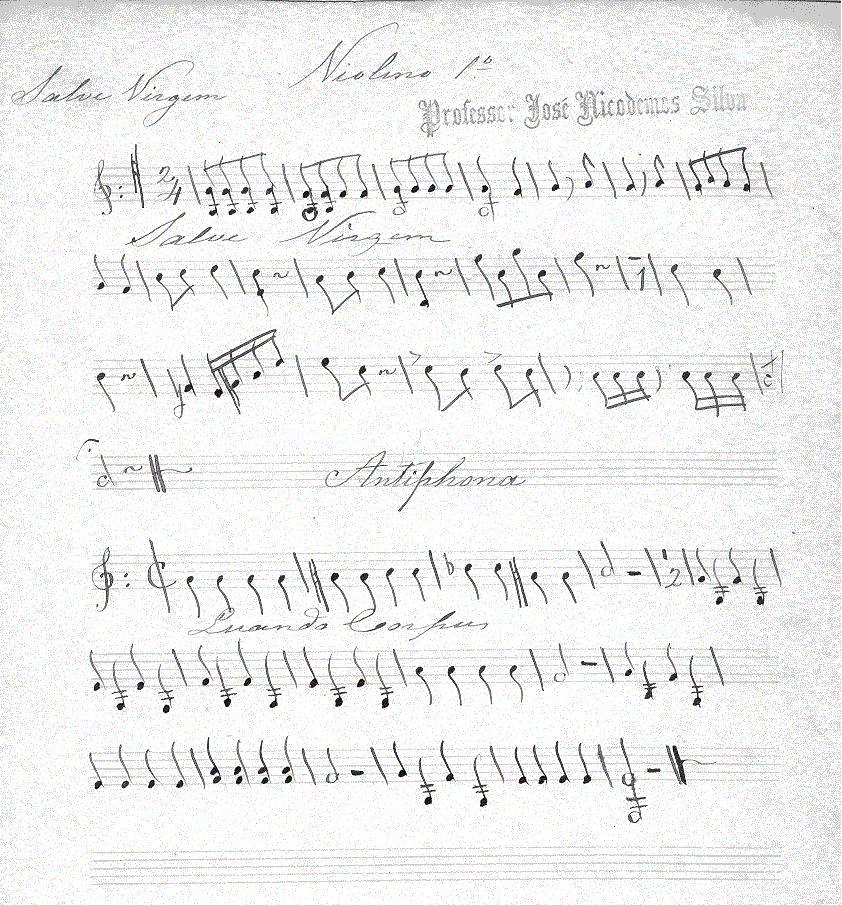 Salve Virgem Violino 1º
Professor José Nicodemos Silva
2/4
Salve Virgem
1
Antiphona
2
Quando Corpus